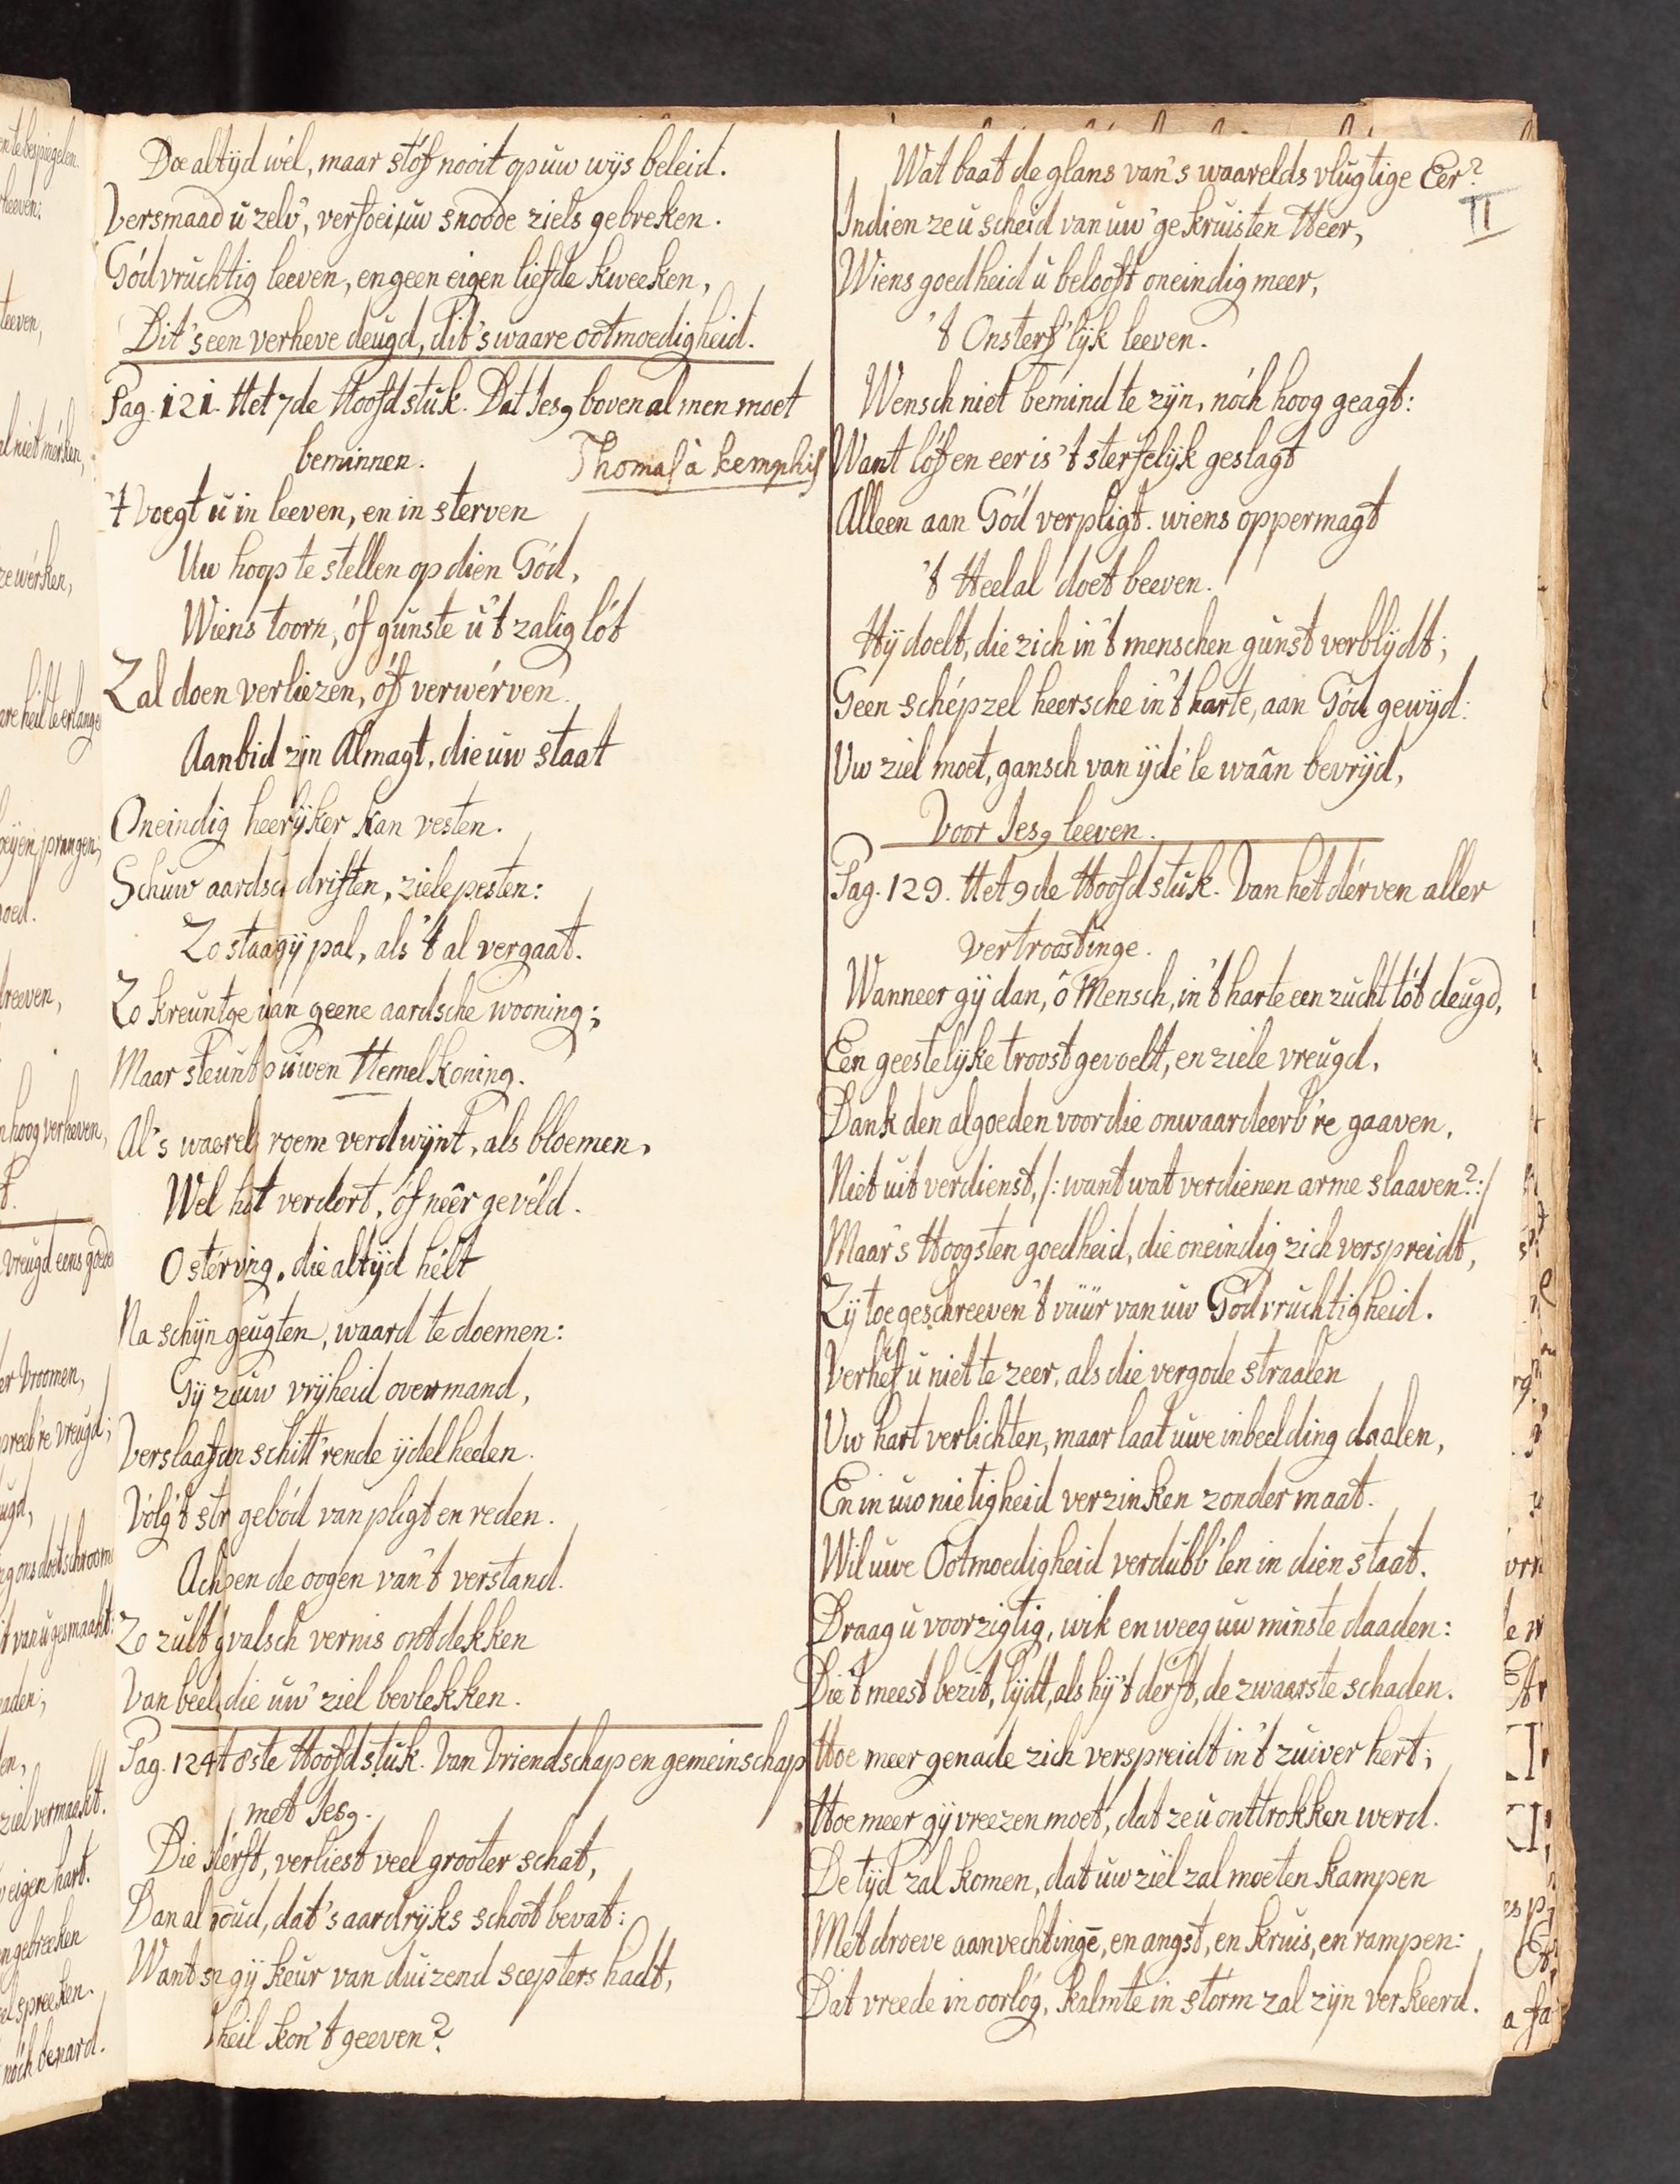 Doe altijd wél, maar stóf nooit op uw wijs beleid.
Versmaad u zelv', verfoei uw snoode ziels gebreken.
Gódvruchtig leeven, en geen eigen liefde kweeken,
Dit 's een verheve deugd, dit 's waare ootmoedigheid.
Pag. 121. Het 7de Hoofdstuk. Dat Jesꝯ boven al men moet
beminnen. Thomas à kemphis
't Voegt u in leeven, en in sterven
Uw hoop te stellen op dien Gód,
Wiens toorn, óf gunste u 't zalig lót
Zal doen verliezen, óf verwérven.
Aanbid zijn Almagt, die uw staat
Oneindig heerijker kan vesten.
Schuw aardsc driften, zielepesten:
Zo staa gij pal, als 't al vergaat.
Zo kreunt ge aan geene aardsche wooning;
Maar steunt o uwen Hemelkoning.
Al 's waerel roem verdwijnt, als bloemen,
Wel hat verdort, óf neêr gevéld.
O stérving, die altijd hélt
Na schijn geugten, waard te doemen:
Gij z uw vrijheid overmand,
Verslaaf an schitt'rende ijdelheden.
Vólg 't str gebód van pligt en reden.
Ach pen de oogen van 't verstand.
Zo zult g valsch vernis ontdekken
Van beel die uw' ziel bevlekken.
Pag. 124 t 8ste Hoofdstuk. Van Vriendschap en gemeinschap
met Jesꝯ.
Die dérft, verliest veel grooter schat,
Dan al oud, dat 's aardrijks schoot bevat:
Want s gij keur van duizend scepters hadt,
heil kon 't geeven?
Wat baat de glans van 's waarelds vlugtige Eer?
II
Indien ze u scheid van uw' gekruisten Heer,
Wiens goedheid u belooft oneindig meer,
't Onsterf'lijk leeven.
Wensch niet bemind te zijn, nóch hoog geagt:
Want lóf en eer is 't sterfelijk geslagt
Alleen aan Gód verpligt. wiens oppermagt
't Heelal doet beeven.
Hij doelt, die zich in 't menschen gunst verblijdt;
Geen schépzel heersche in 't harte, aan Gód gewijd:
Uw ziel moet, gansch van ijdé le waân bevrijd,
Voor Jesꝯ leeven.
Pag. 129. Het 9de Hoofdstuk. Van het dérven aller
vertroostinge.
Wanneer gij dan, ô Mensch, in 't harte een zucht tót deugd,
Een geestelijke troost gevoelt, en ziele vreugd,
Dank den algoeden voor die onwaardeerb're gaaven.
Niet uit verdienst, /: want wat verdienen arme slaaven?:/
Maar 's Hoogsten goedheid, die oneindig zich verspreidt,
Zij toegeschreeven 't vuur van uw Gódvruchtigheid.
Verhef u niet te zeer, als die vergode straalen
Uw hart verlichten, maar laat uwe inbeelding daalen,
En in uw nietigheid verzinken zonder maat.
Wil uwe Ootmoedigheid verdubb'len in dien staat.
Draag u voorzigtig, wik en weeg uw minste daaden:
Die 't meest bezit, lijdt, als hij 't derft, de zwaarste schaden.
Hoe meer genade zich verspreidt in 't zuiver hert;
Hoe meer gij vreezen moet, dat ze u onttrokken werd.
De tijd zal komen, dat uw ziel zal moeten kampen
Mét droeve aanvechtingē, en angst, en kruis, en rampen:
Dat vreede in oorlóg, kalmte in stórm zal zijn verkeerd.